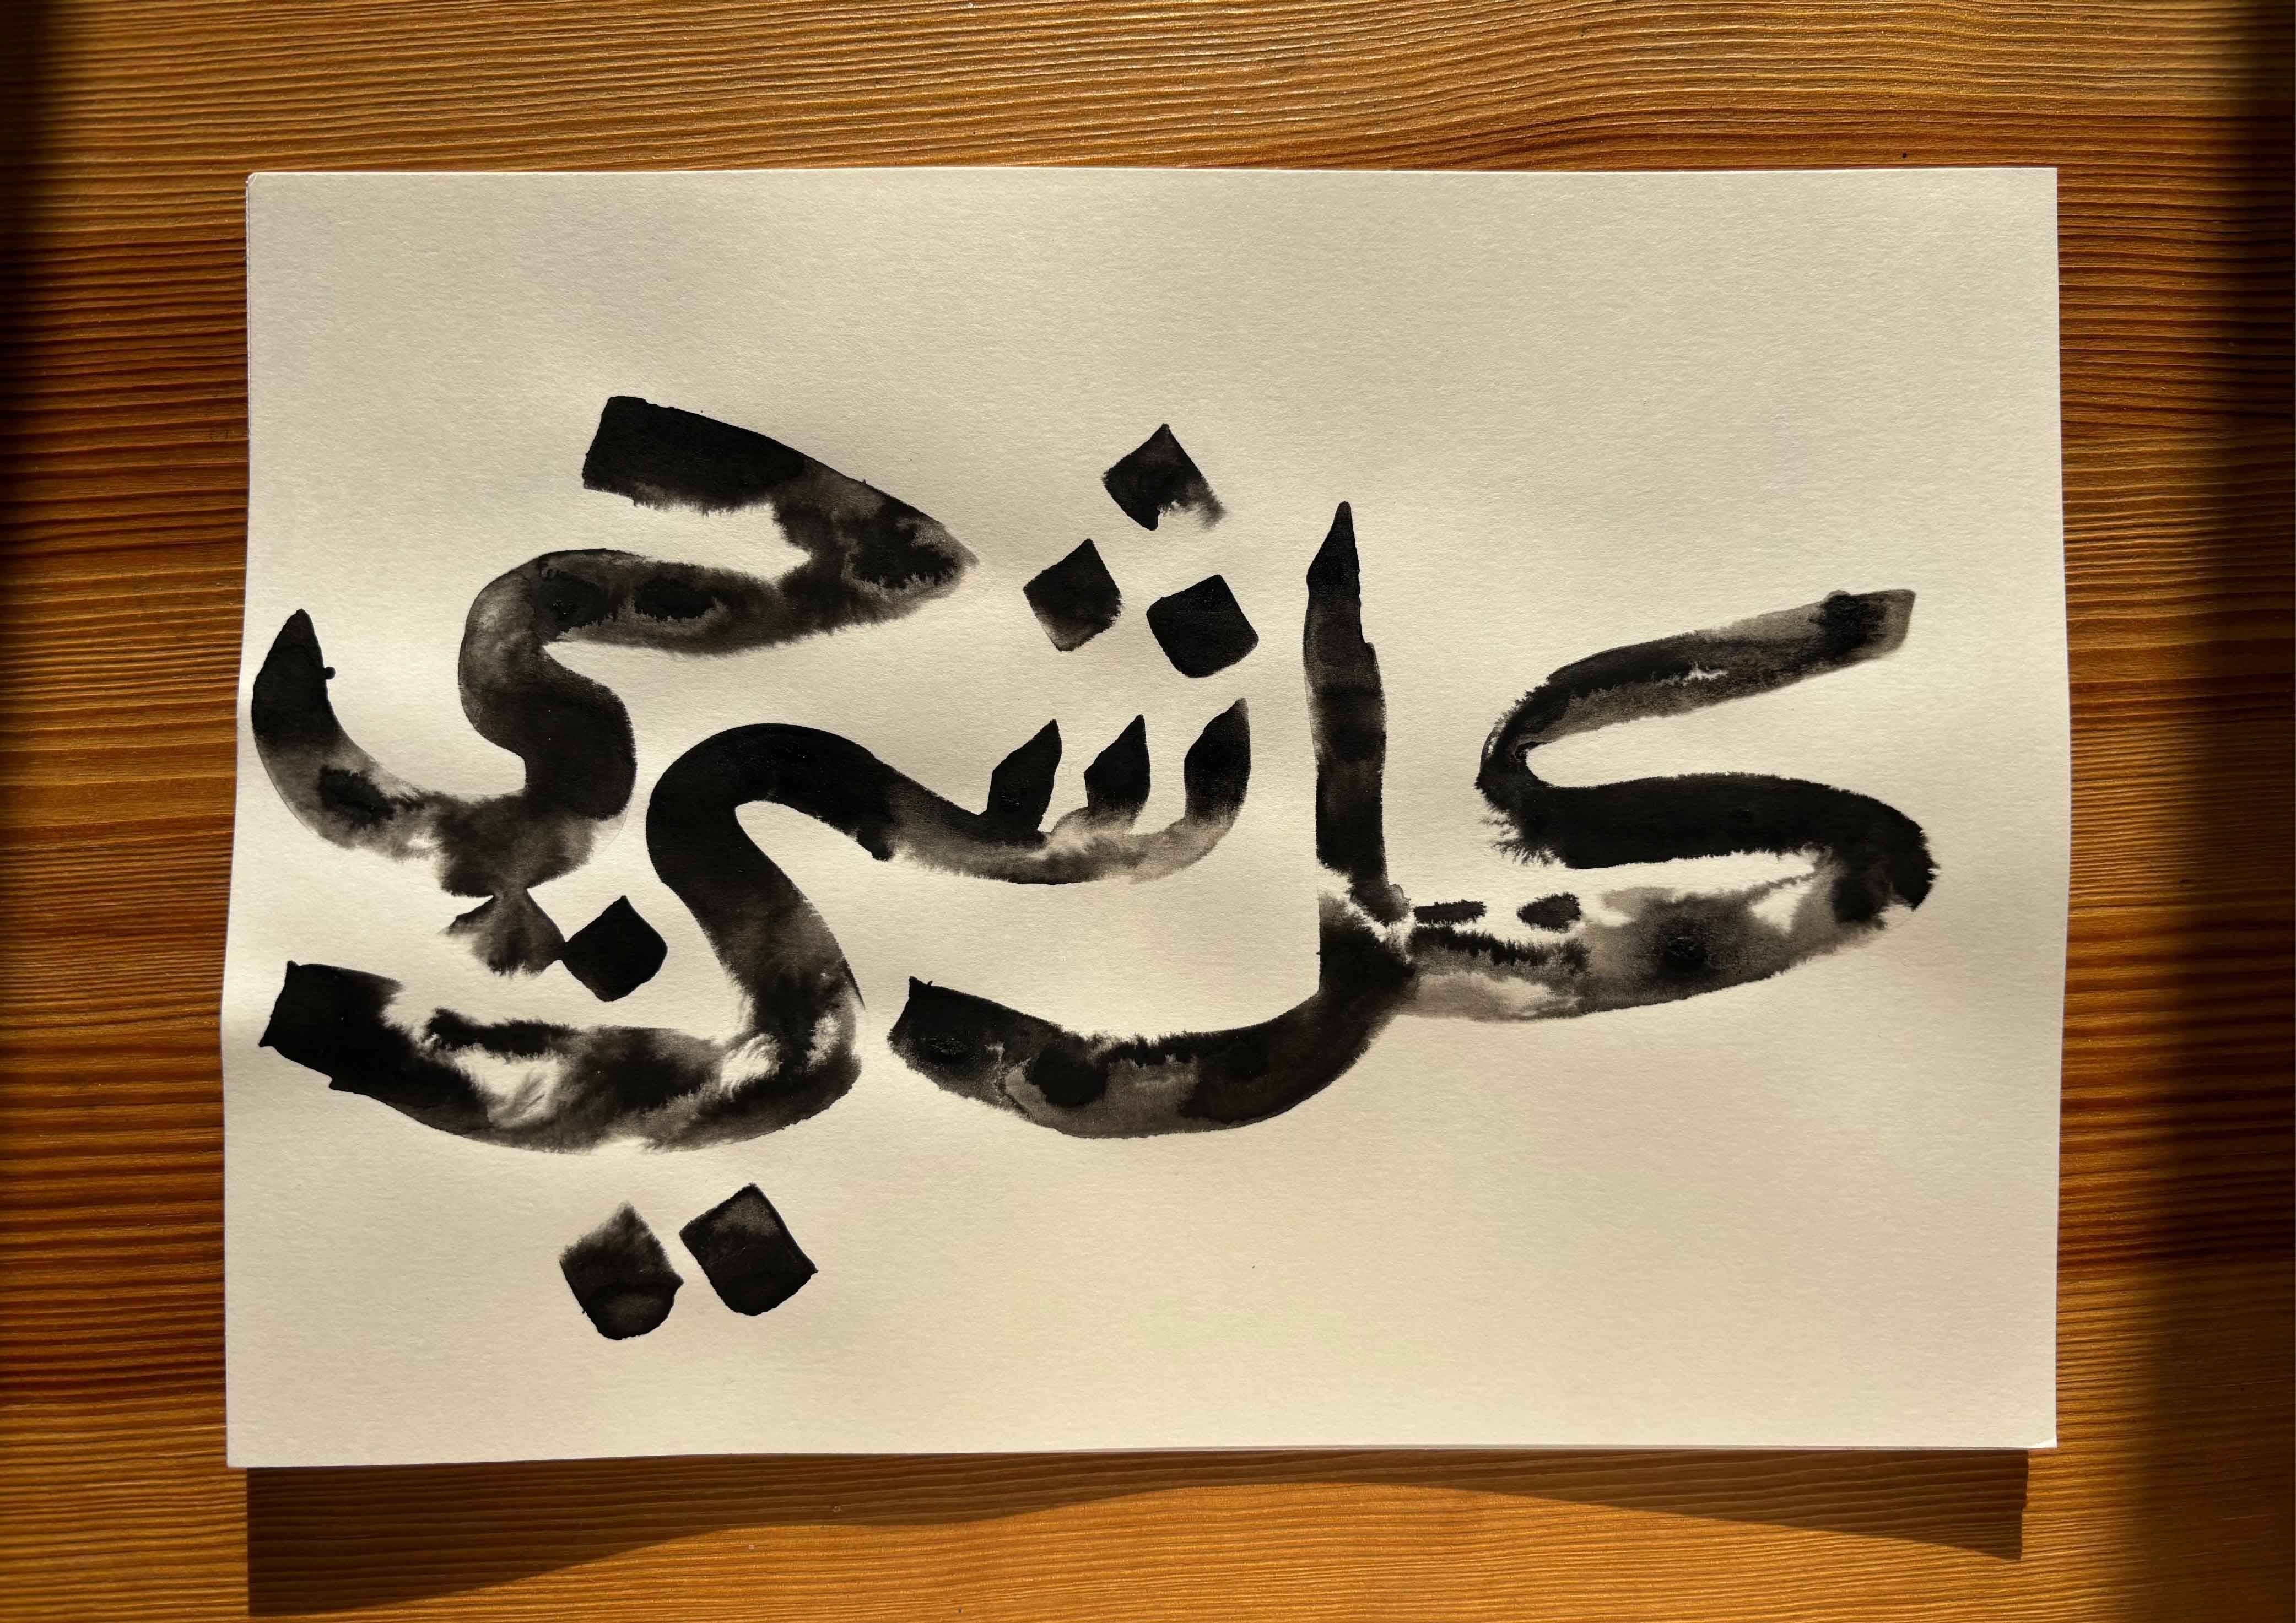 كل شي حي